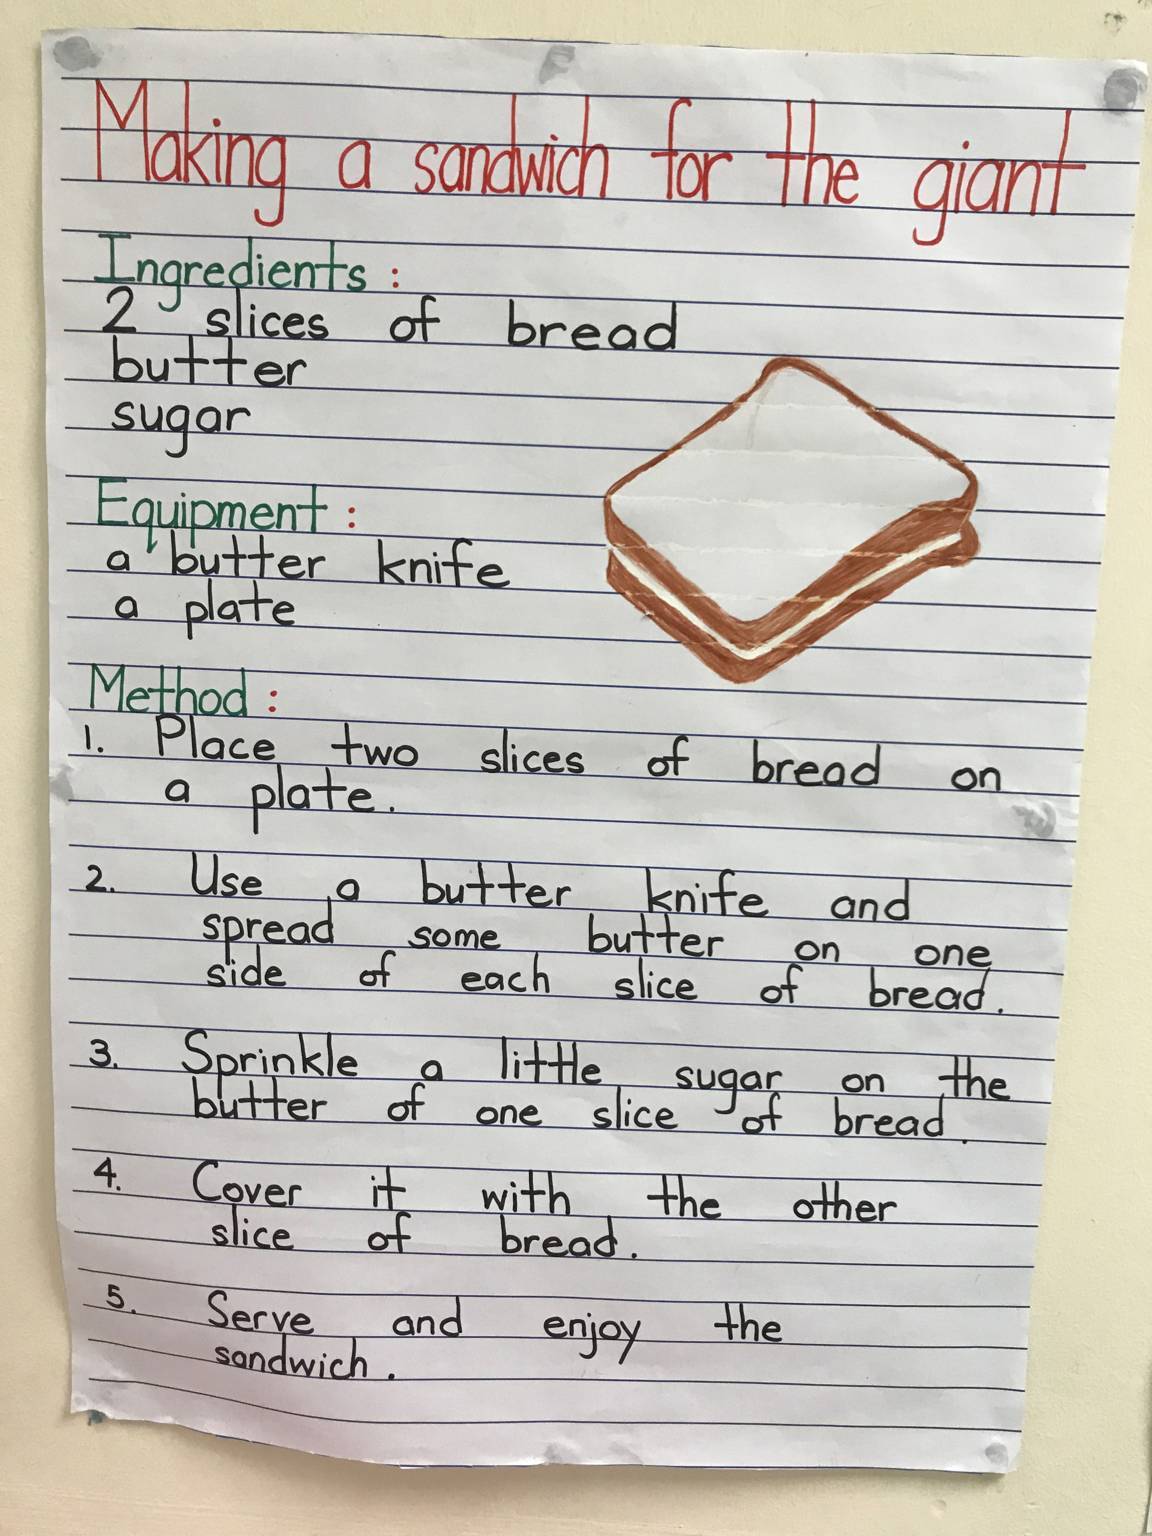 Making a sandwich for the giant
Ingredients :
2 slices of bread
butter
sugar
Equipment :
a butter knife
a plate
Method :
1. Place two slices of bread on
a plate.
2. Use a butter knife and
spread some butter on one
side of each slice of bread.
3. Sprinkle a little sugar on the
butter of one slice of bread.
4. Cover it with the other
slice of bread.
5. Serve and enjoy the
sandwich.